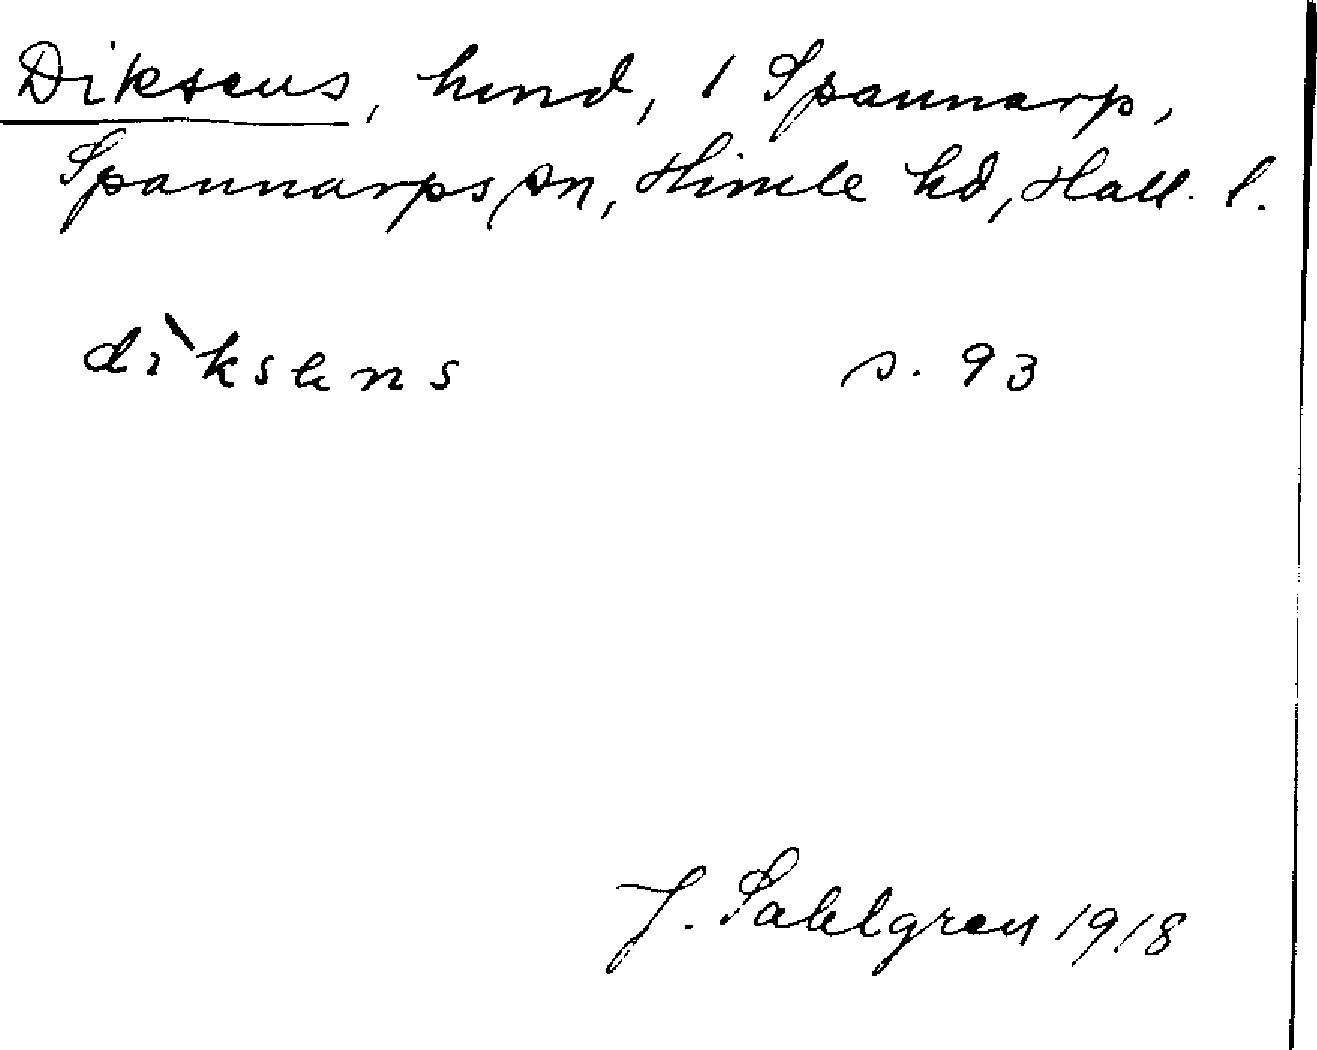 Diksens, hmd, 1 Spannarp,
Spannarps sn, Himle hd, Hall. l.
dìksens s. 93
J. Sahlgren 1918